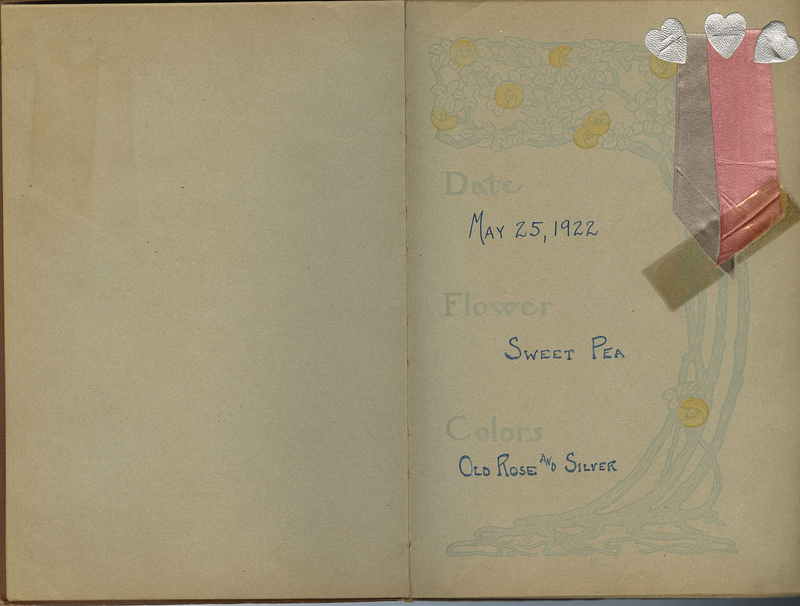 Date
May 25, 1922
Flower
Sweet Pea
Colors
Old Rose and Silver